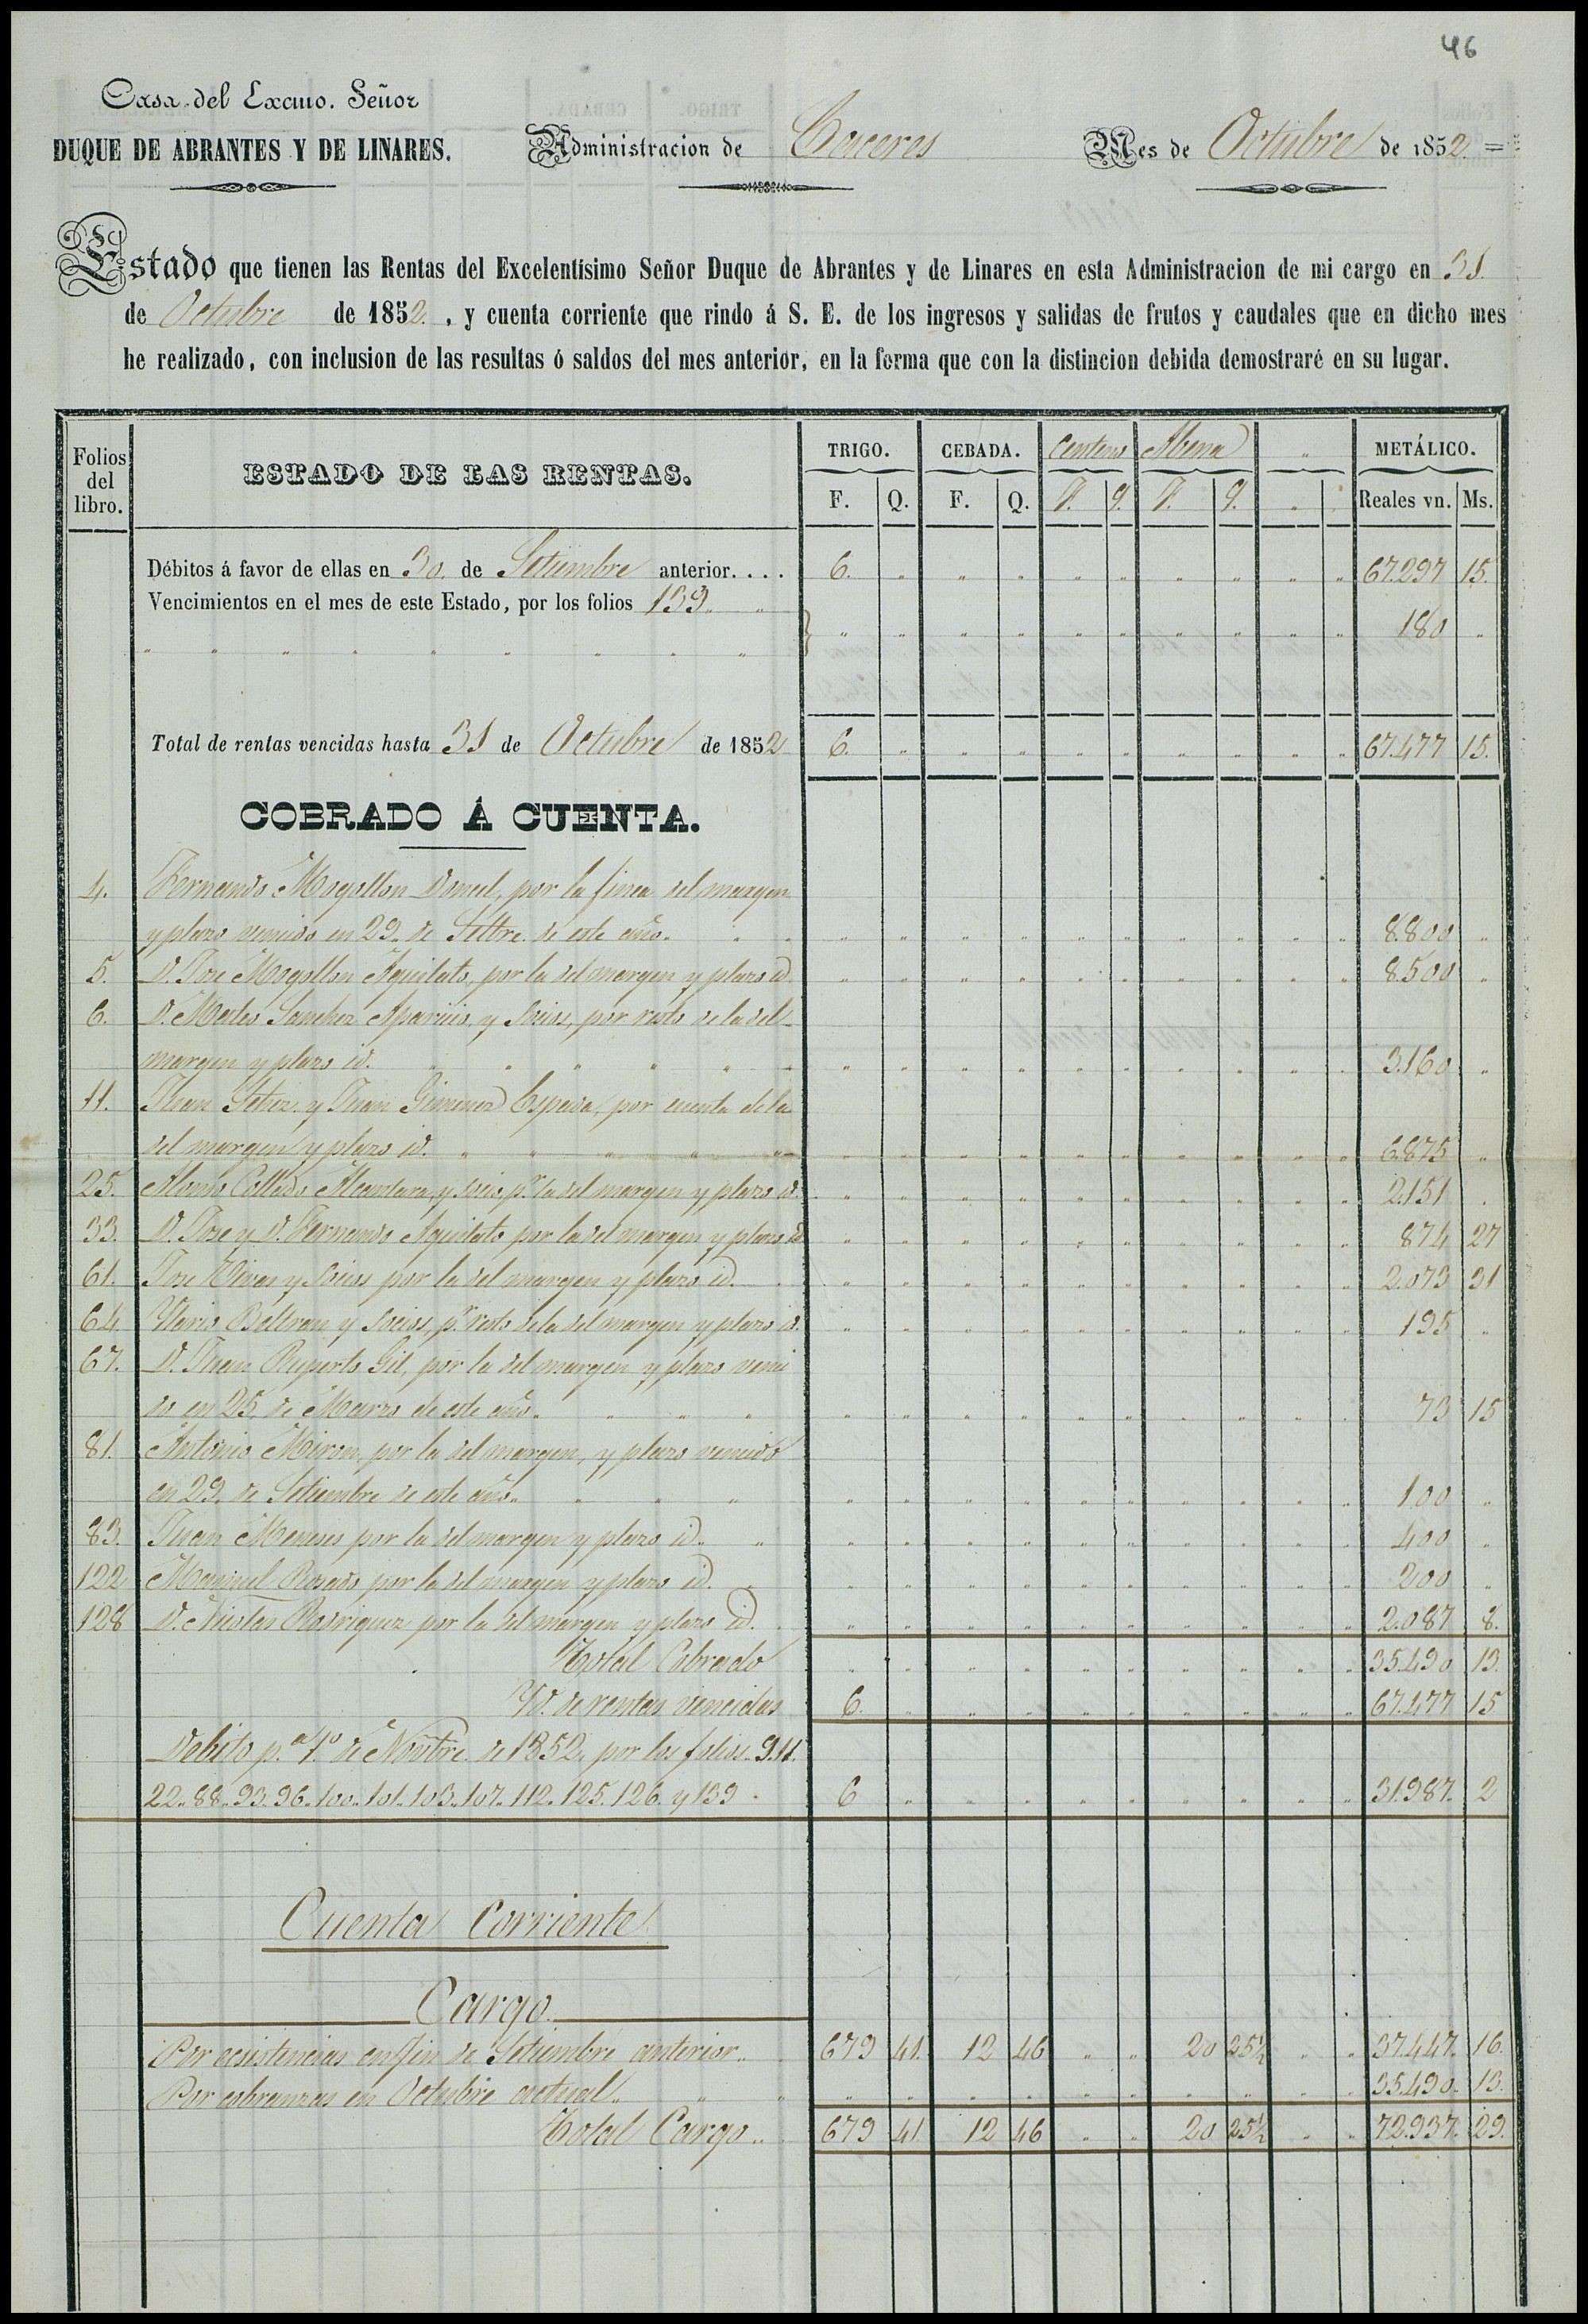 46
Casa del Excmo. Señor
DUQUE DE ABRANTES Y DE LINARES.
Administracion de Caceres
Mes de Octubre de 1852. =
Estado que tienen las Rentas del Excelentísimo Señor Duque de Abrantes y de Linares en esta Administracion de mi cargo en 31.
de Octubre de 1852. , y cuenta corriente que rindo á S. E. de los ingresos y salidas de frutos y caudales que en dicho mes
he realizado, con inclusion de las resultas ó saldos del mes anterior, en la forma que con la distincion debida demostraré en su lugar.
Folios del libro. ESTADO DE LAS RENTAS. TRIGO. CEBADA. Centeno Abena " METÁLICO.
F. Q. F. Q. F. q. F. q. " Reales vn. Ms.
Débitos á favor de ellas en 30. de Setiembre anterior.... 6. " " " " " " " " " 67.297 15.
Vencimientos en el mes de este Estado, por los folios 139. "
" " " " " " " " " } " " " " " " " " " " 180 "
Total de rentas vencidas hasta 31 de Octubre de 1852 6. " " " " " " " " " 67.477 15.
COBRADO Á CUENTA.
4. Fernando Mogollon Doncel, por la finca del margen
y plazo vencido en 29. de Setbre. de este año. " " 8.800 "
5. D. Jose Mogollon Aguilato, por la del margen y plazo id. 8.500 "
6. D. Mateo Sanchez Aparicio, y Socios, por resto de la del
margen y plazo id. " " " " " " 3.160 "
11. Juan y Juan Gimenez Espada, por cuenta de la
del margen y plazo id. " " " " " 6.875 "
25. Alonso Collado Alcantara, y socio, pr. la del margen y plazo id. 2.151 "
33. D. Jose y D. Fernando Aguilato por la del margen y plazo id. 874 27
61. Jose Vivas y Socios por la del margen y plazo id. 2.073 31
64. Ylario Beltran y Socios, pr. resto de la del margen y plazo id. 195 "
67. D. Juan Ruperto Gil, por la del margen y plazo venci
do en 25. de Marzo de este año. " " " 73 15
81. Antonio Miron, por la del margen, y plazo vencido
en 29. de Setiembre de este año. " " " 100 "
83. Juan Meneses por la del margen y plazo id. " 400 "
122 Manuel Rosado por la del margen y plazo id. " 200 "
128 D. Nicolas Rodriguez por la del margen y plazo id. 2.087 8.
Total Cobrado 35.490 13.
Yd. de rentas vencidas 6. 67.477 15
Debito p.ª 1.º de Novbre. de 1852, por los folios. 9.11.
22..88..93.96..100..101..103..107..112..125..126. y 139 . 6 31.987. 2
Cuenta Corriente
Cargo.
Por ecsistencias en fin de Setiembre anterior.. 679 41. 12 46 " " 20 25½ " " 37.447. 16.
Por cobranzas en Octubre actual.. " " " " " " " " " " " " 35.490. 13.
Total Cargo.. 679 41 12 46 " " 20 25½ " " 72.937. 29.